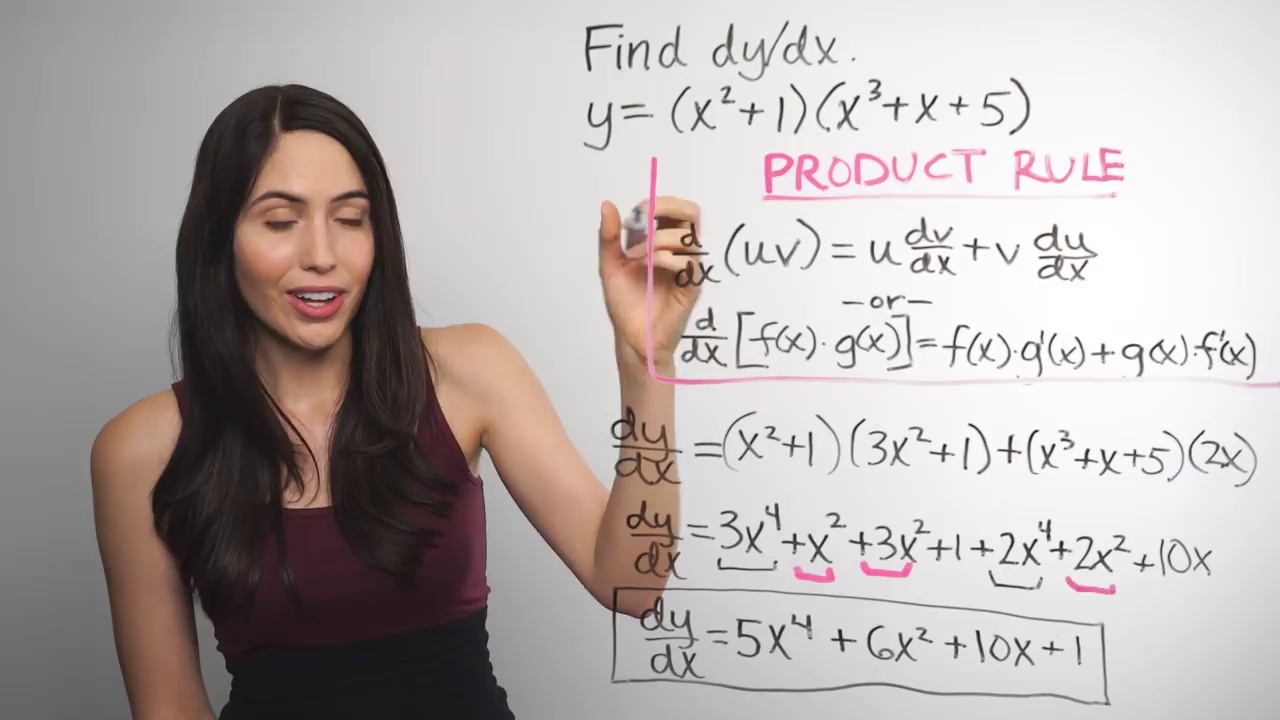 Find dy/dx.
y = (x² + 1)(x³ + x + 5)
PRODUCT RULE
d/dx (uv) = u dv/dx + v du/dx
–or–
d/dx [f(x) · g(x)] = f(x) · g'(x) + g(x) · f'(x)
dy/dx = (x² + 1)(3x² + 1) + (x³ + x + 5)(2x)
dy/dx = 3x⁴ + x² + 3x² + 1 + 2x⁴ + 2x² + 10x
dy/dx = 5x⁴ + 6x² + 10x + 1